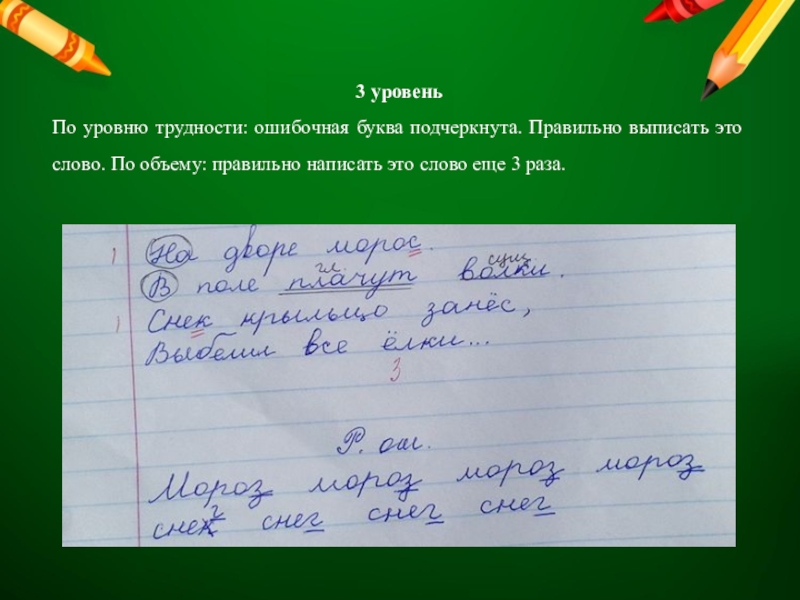 3 уровень
По уровню трудности: ошибочная буква подчеркнута. Правильно выписать это
слово. По объему: правильно написать это слово еще 3 раза.
1 На дворе морос.
гл. сущ.
В поле плачут волки.
1 Снек крыльцо занёс,
Выбелил все ёлки...
3
Р. ош.
Мороз мороз мороз мороз
г
снек снег снег снег